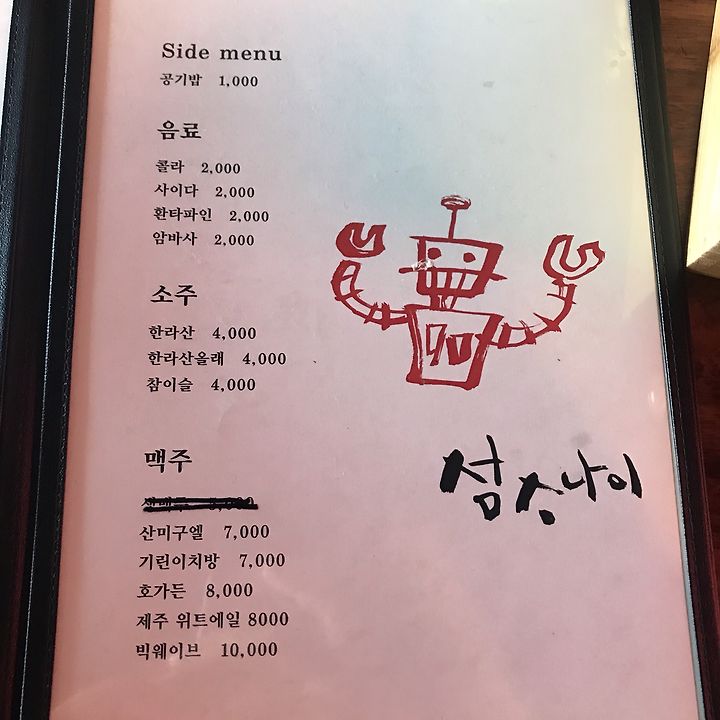 Side menu
공기밥 1,000
음료
콜라 2,000
사이다 2,000
환타파인 2,000
암바사 2,000
소주
한라산 4,000
한라산올래 4,000
참이슬 4,000
맥주
산미구엘 7,000
기린이치방 7,000
호가든 8,000
제주 위트에일 8000
빅웨이브 10,000
섬소나이